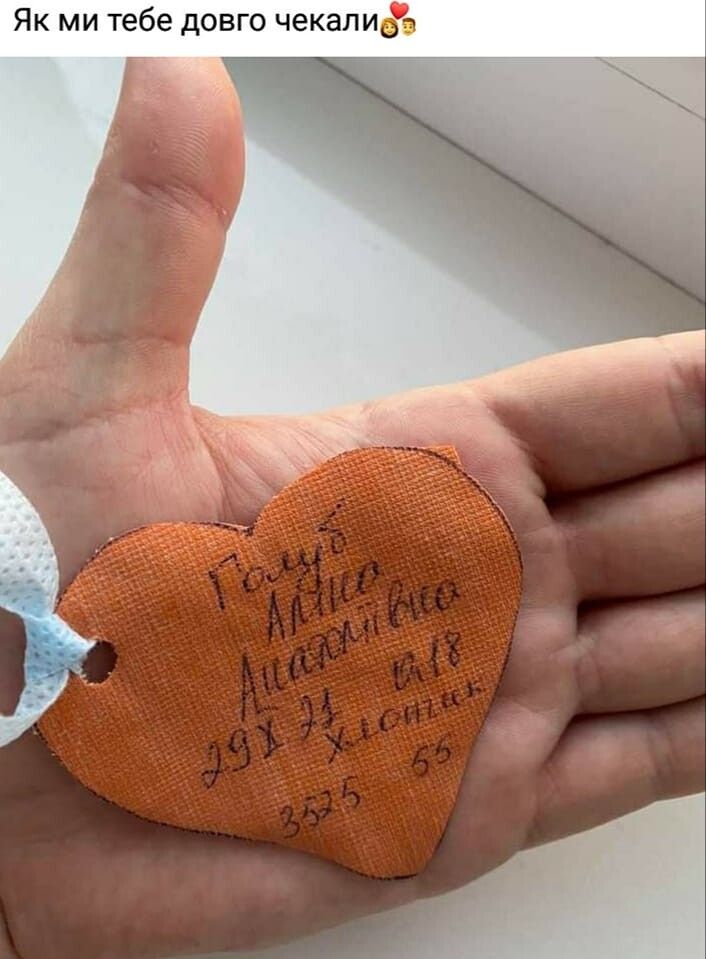 Як ми тебе довго чекали💑
Голуб
Аліна
Анатоліївна
29 X 21
хлопчик
3525 55